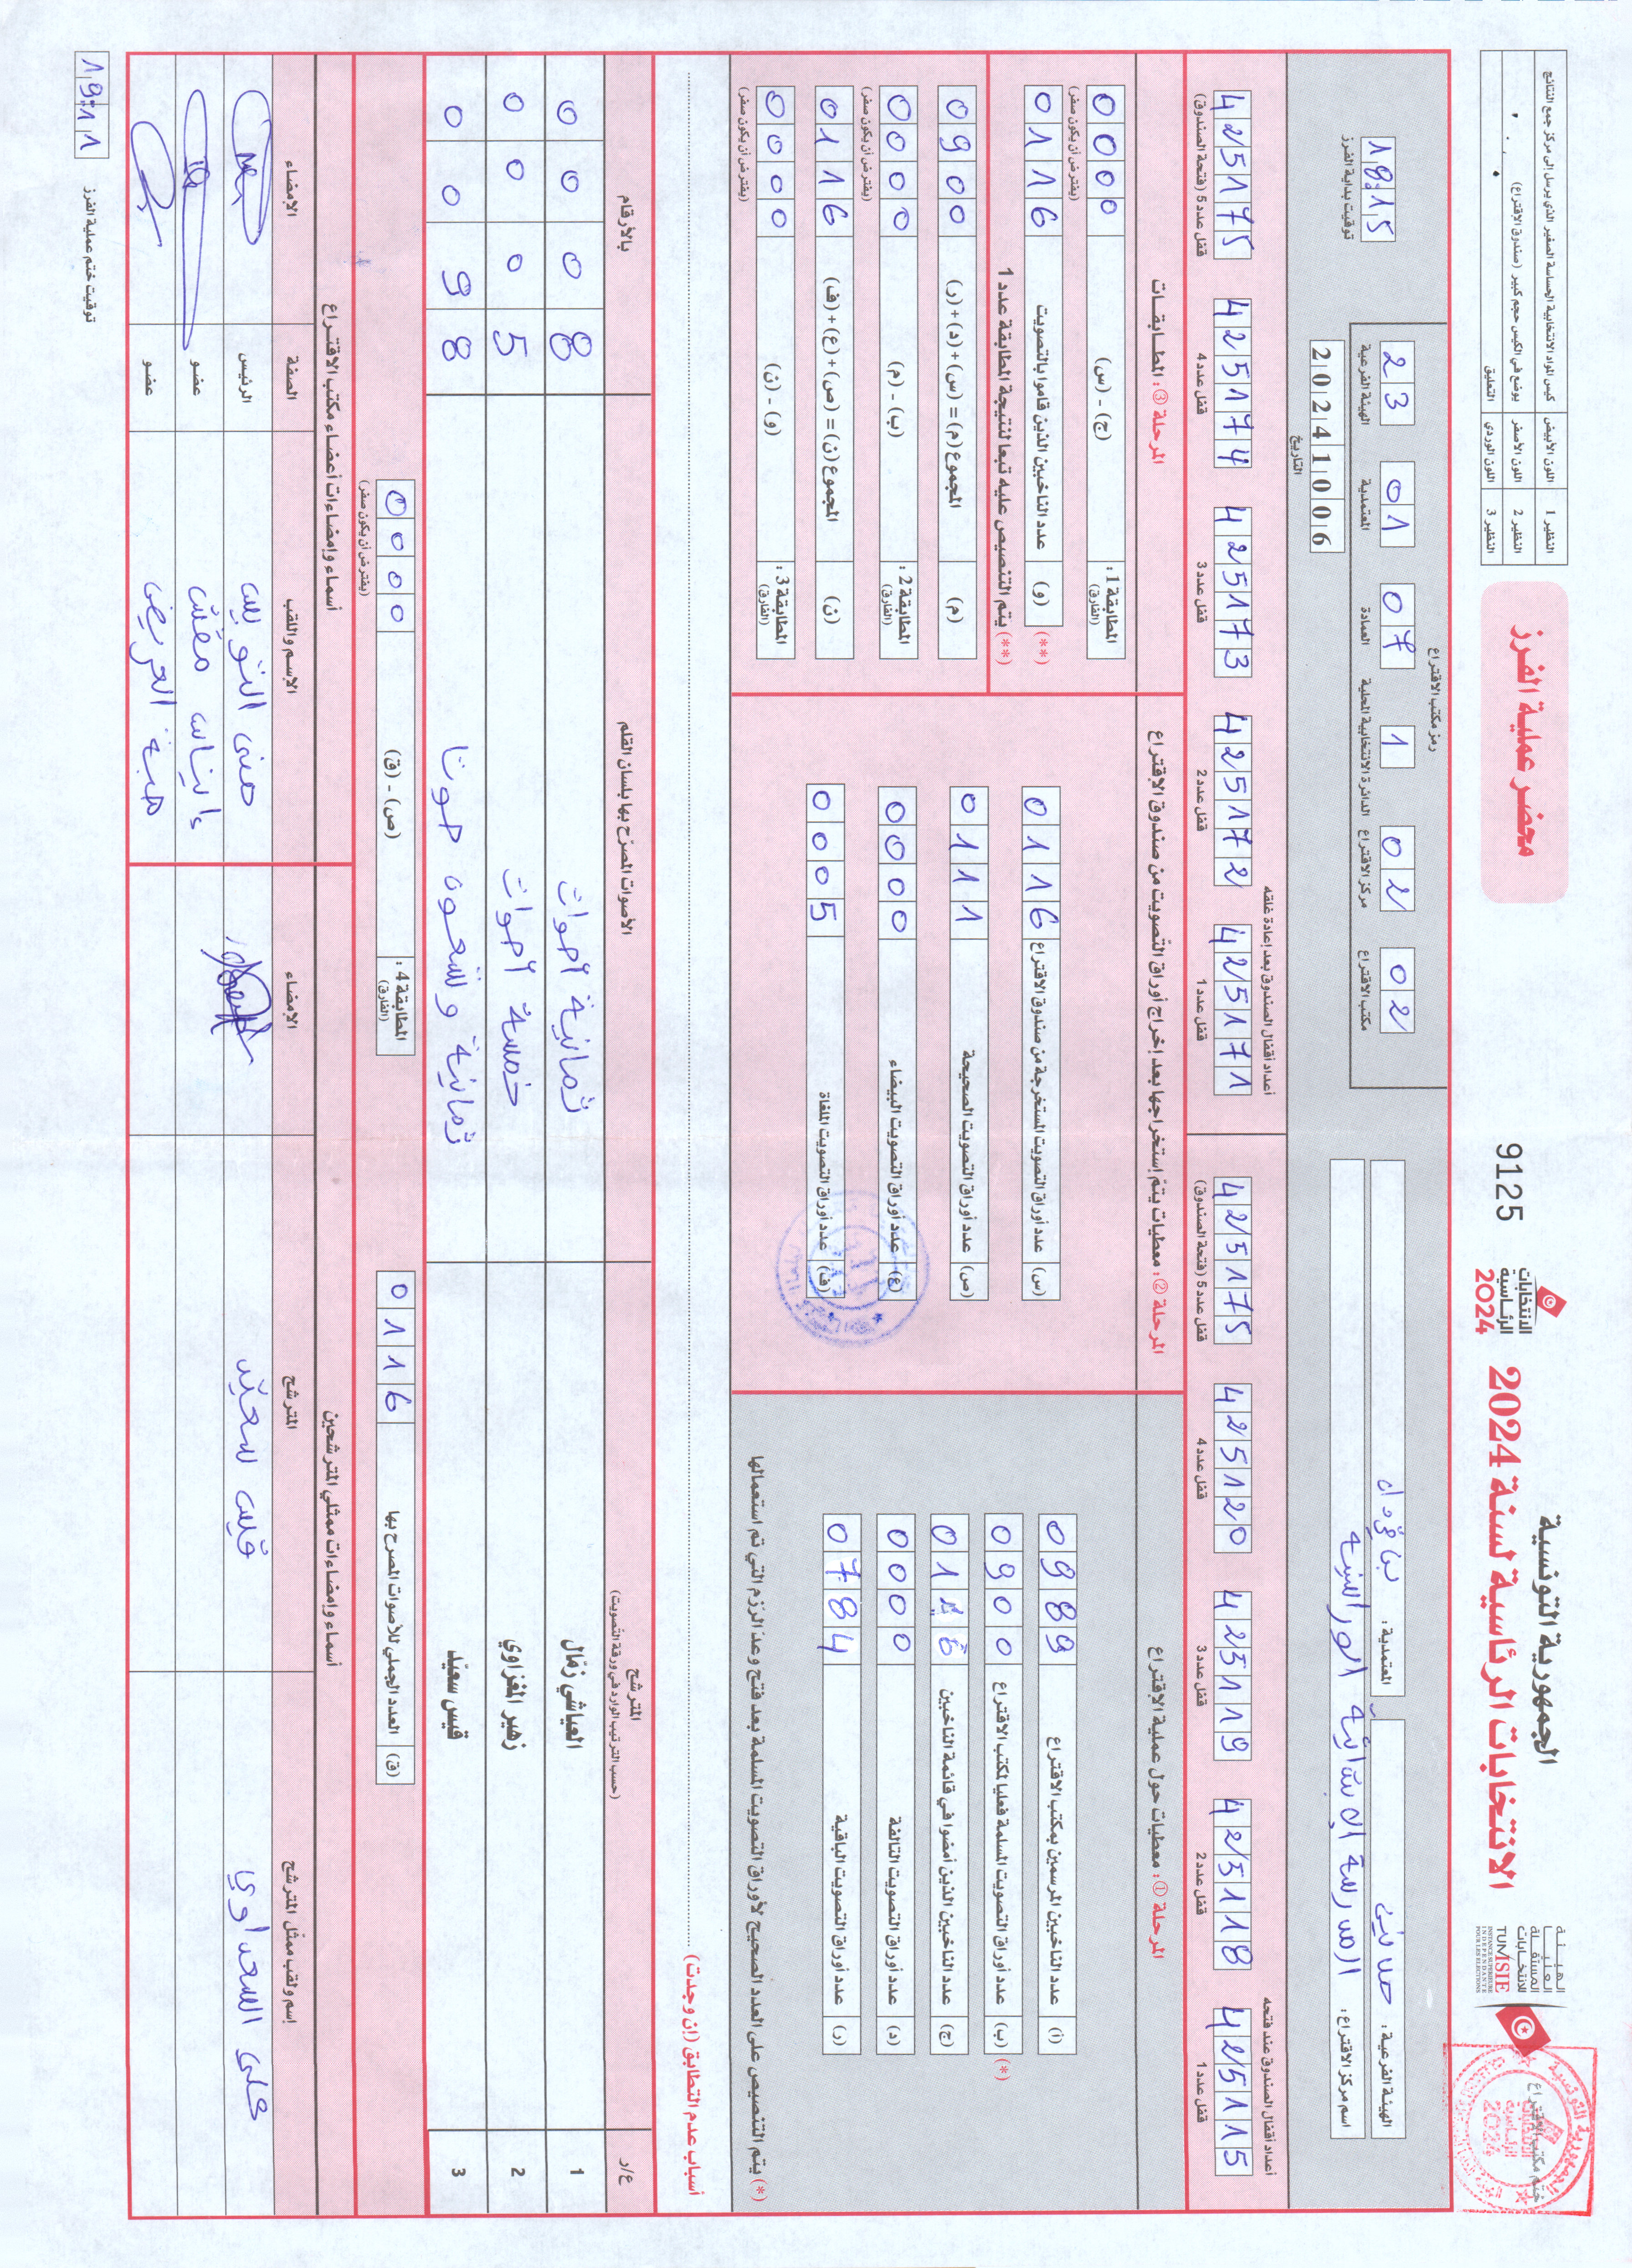 الجمهورية التونسية
الانتخابات الرئاسية لسنة 2024
الانتخابات الرئاسية 2024
الهيئة العليا المستقلة للانتخابات
TUNISIE
INSTANCE SUPERIEURE INDEPENDANTE POUR LES ELECTIONS
ختم مكتب الاقتراع
9125
محضر عملية الفرز
النظير 1 اللون الأبيض كيس المواد الانتخابية الحساسة الصغير الذي يرسل إلى مركز جمع النتائج
النظير 2 اللون الأصفر يوضع في الكيس حجم كبير (صندوق الاقتراع)
النظير 3 اللون الوردي التعليق
الهيئة الفرعية :
المعتمدية :
اسم مركز الاقتراع : المدرسة الابتدائية
رمز مكتب الاقتراع
23 01 07 1 02 02
الهيئة الفرعية المعتمدية العمادة الدائرة الانتخابية المحلية مركز الاقتراع مكتب الاقتراع
20241006
التاريخ
18:15
توقيت بداية الفرز
أعداد أقفال الصندوق عند فتحه
425115 425118 425119 425120 425175
قفل عدد 1 قفل عدد 2 قفل عدد 3 قفل عدد 4 قفل عدد 5 (فتحة الصندوق)
أعداد أقفال الصندوق بعد إعادة غلقه
425171 425172 425173 425174 425175
قفل عدد 1 قفل عدد 2 قفل عدد 3 قفل عدد 4 قفل عدد 5 (فتحة الصندوق)
المرحلة ① : معطيات حول عملية الاقتراع
(أ) عدد الناخبين المرسمين بمكتب الاقتراع 0989
(*) (ب) عدد أوراق التصويت المسلمة فعليا لمكتب الاقتراع 0900
(ج) عدد الناخبين الذين أمضوا في قائمة الناخبين 0116
(د) عدد أوراق التصويت التالفة 0000
(ر) عدد أوراق التصويت الباقية 0784
(*) يتم التنصيص على العدد الصحيح لأوراق التصويت المسلمة بعد فتح وعد الرزم التي تم استعمالها
المرحلة ② : معطيات يتم إستخراجها بعد إخراج أوراق التصويت من صندوق الاقتراع
(س) عدد أوراق التصويت المستخرجة من صندوق الاقتراع 0116
(ص) عدد أوراق التصويت الصحيحة 0111
(ع) عدد أوراق التصويت البيضاء 0000
(ف) عدد أوراق التصويت الملغاة 0005
المرحلة ③ : المطابقات
المطابقة 1 : (الفارق) (ج) - (س) 0000
(يفترض أن يكون صفر)
(**) (و) عدد الناخبين الذين قاموا بالتصويت 0116
(**) يتم التنصيص عليه تبعا لنتيجة المطابقة عدد 1
(م) المجموع (م) = (س) + (د) + (ر) 0900
المطابقة 2 : (الفارق) (ب) - (م) 0000
(يفترض أن يكون صفر)
(ن) المجموع (ن) = (ص) + (ع) + (ف) 0116
المطابقة 3 : (الفارق) (و) - (ن) 0000
(يفترض أن يكون صفر)
أسباب عدم التطابق (إن وجدت)
ع/ر المترشح (حسب الترتيب الوارد في ورقة التصويت) الأصوات المصرّح بها بلسان القلم بالأرقام
1 العياشي زمّال ثمانية أصوات 0008
2 زهير المغزاوي خمسة أصوات 0005
3 قيس سعيّد ثمانية وتسعون صوتا 0098
(ق) العدد الجملي للأصوات المصرح بها 0116
المطابقة 4 : (الفارق) (ص) - (ق) 0000
(يفترض أن يكون صفر)
أسماء وإمضاءات ممثلي المترشحين
إسم ولقب ممثل المترشح المترشح الإمضاء
علي السعداوي قيس سعيّد
أسماء وإمضاءات أعضاء مكتب الاقتراع
الإسم واللقب الصفة الامضاء
الرئيس
عضو
عضو
19:11
توقيت ختم عملية الفرز